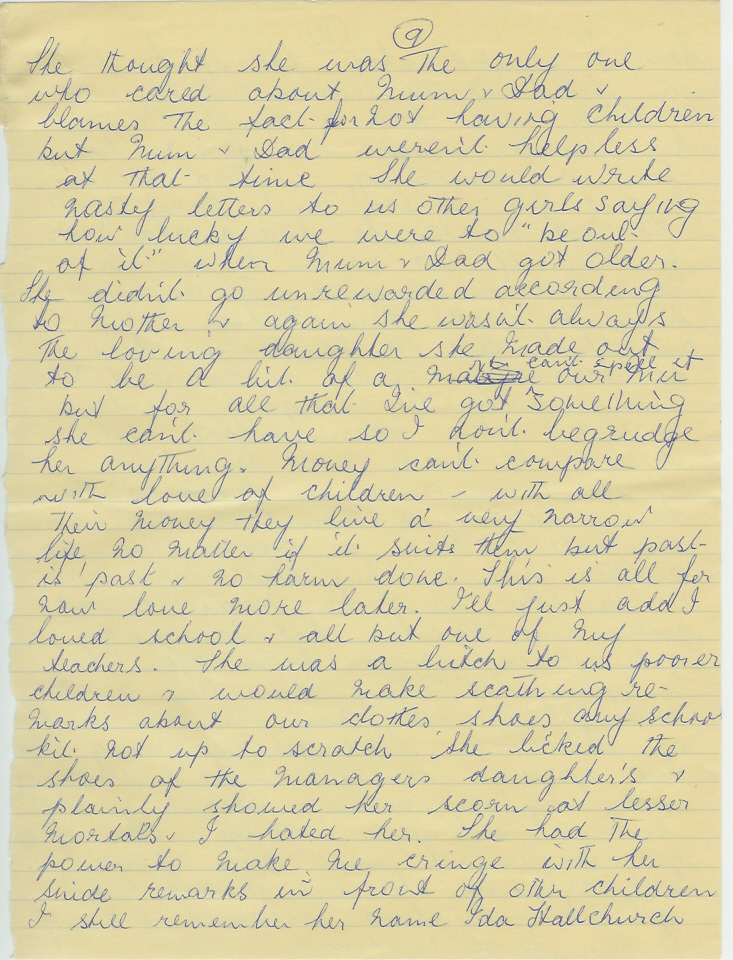 9
She thought she was The only one
who cared about Mum & Dad &
blames The fact for not having children
but Mum & Dad weren't helpless
at that time She would write
nasty letters to us other girls saying
how lucky we were to "be out
of it" when Mum & Dad got older.
She didn't go unrewarded according
to Mother & again she wasn't always
The loving daughter she made out
can't spell it
to be a bit of a our Min
but for all that I've got something
she can't have so I don't begrudge
her anything. Money can't compare
with love of children - with all
their money they live a very narrow
life, no matter if it suits them but past
is past & no harm done. This is all for
now love more later. I'll just add I
loved school & all but one of my
teachers. She was a bitch to us poorer
children & would make scathing re-
marks about our clothes shoes any school
kit not up to scratch She licked the
shoes of the Managers daughter's &
plainly showed her scorn at lesser
mortals & I hated her. She had The
power to make me cringe with her
snide remarks in front of other children
I still remember her name Ida Hallchurch